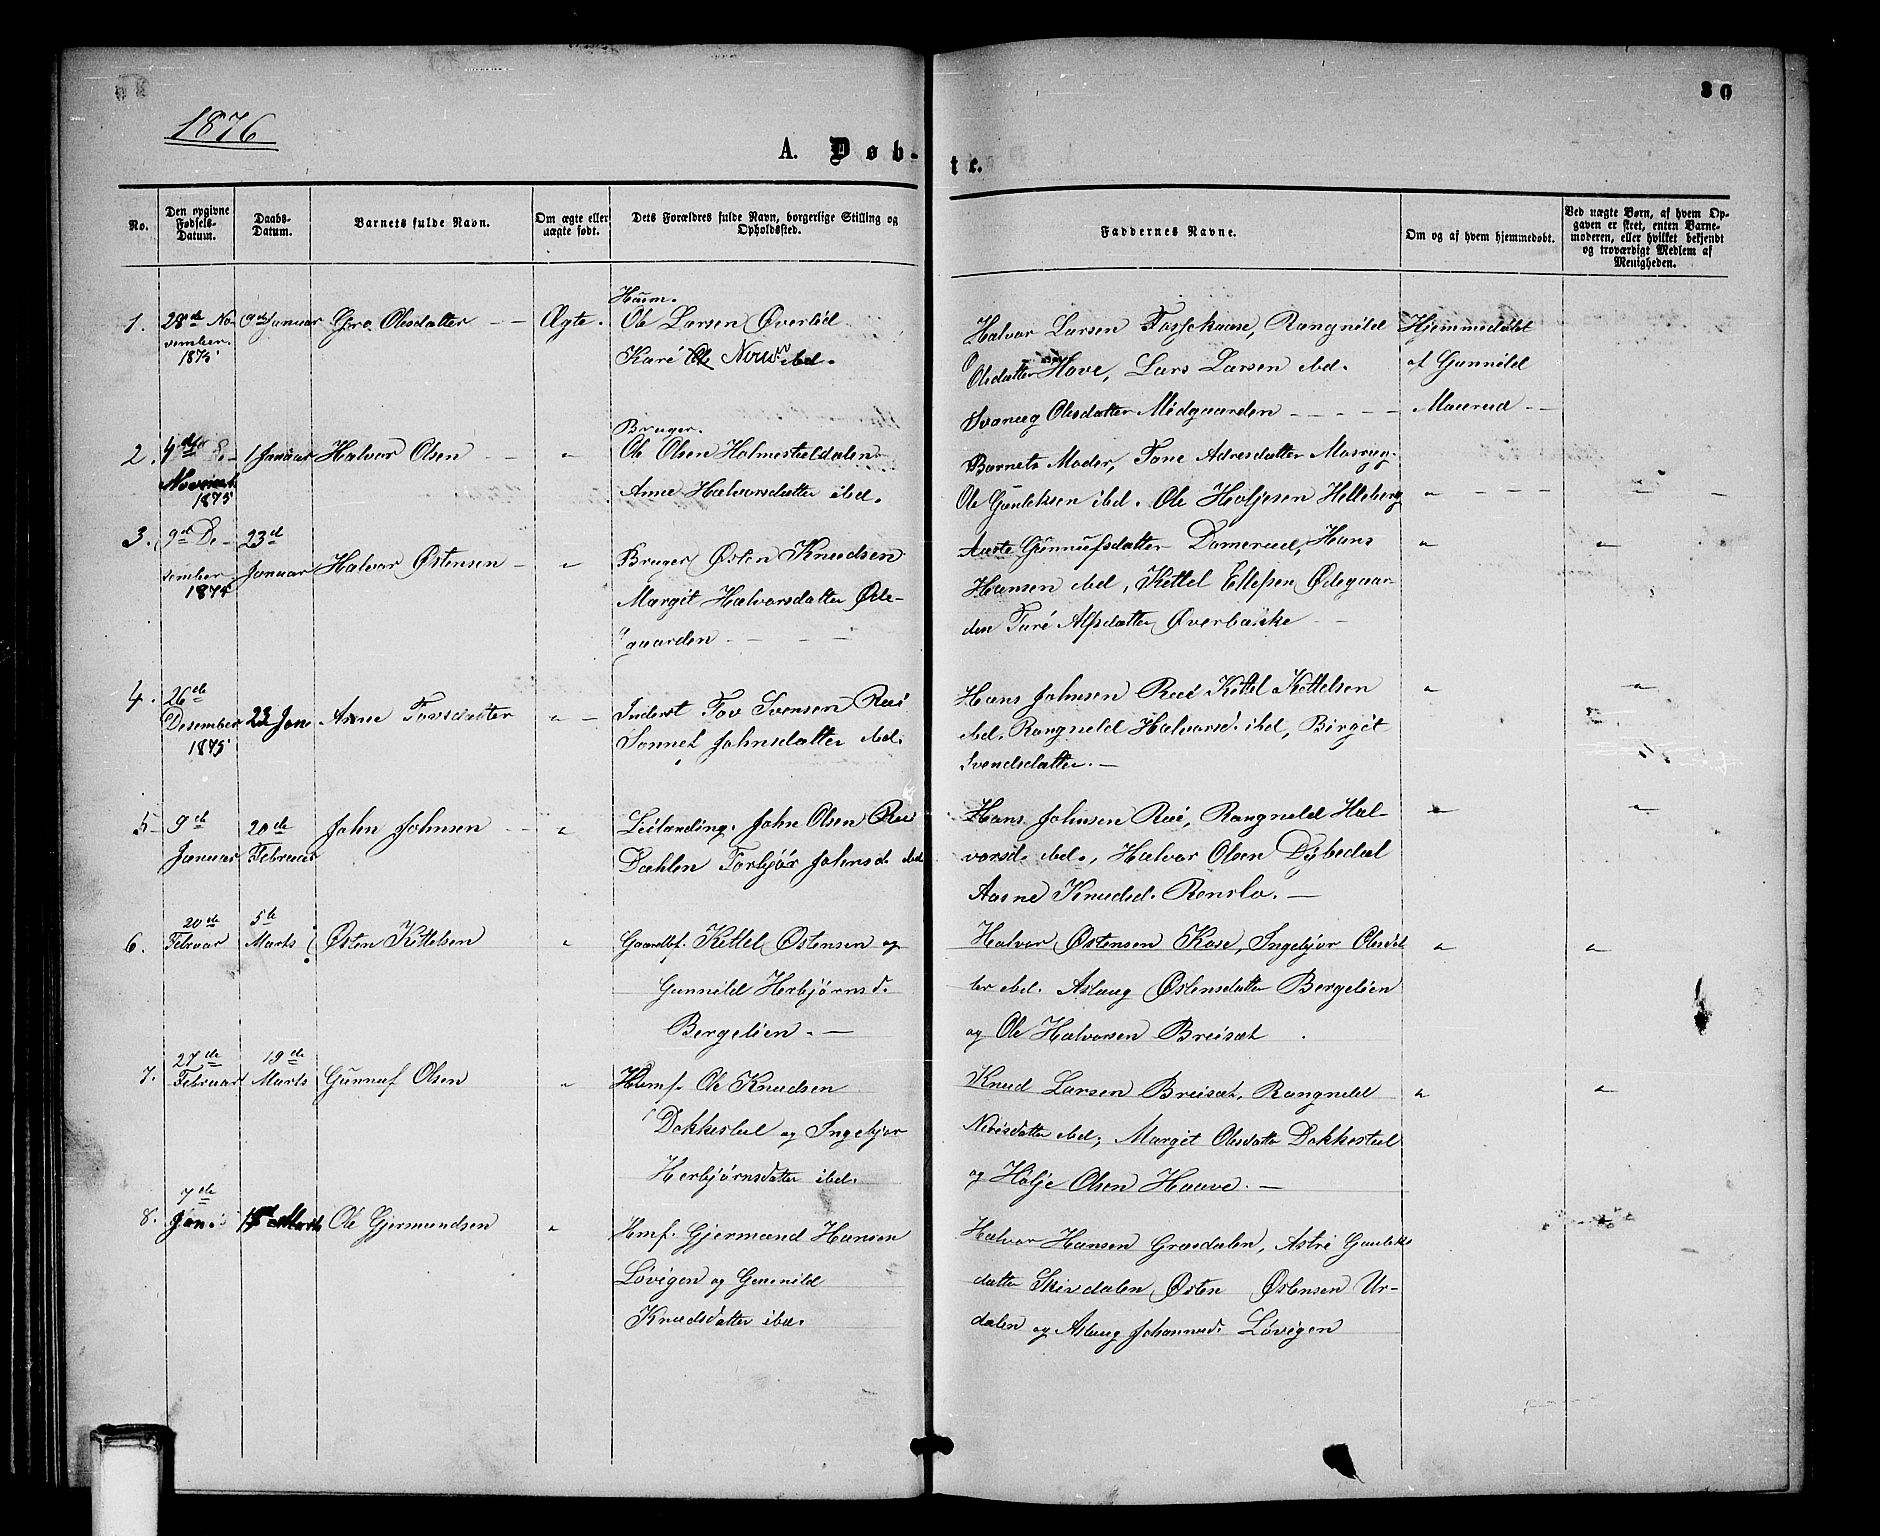 1876
30
A. Døb-
te.
No.
Den opgivne Fødsels-Datum.
Daabs-Datum.
Barnets fulde Navn.
Om ægte eller uægte født.
Dets Forældres fulde Navn, borgerlige Stilling og Opholdssted.
Faddernes Navne.
Om og af hvem hjemmedøbt.
Ved uægte Børn, af hvem Opgaven er skeet, enten Barnemoderen, eller hvilket bekjendt og troværdigt Medlem af Menigheden.
1. 28de November 1875 9de Januar Gro Olesdatter Ægte.
Husm.
Ole Larsen Øverlid
Kari ibd.
Halvor Larsen Rangnild
Olesdatter Hove, Lars Larsen ibd.
Svanug Olesdatter Midgaarden
Hjemmedøbt
af Gunnild
Maurud
2. 4de November 1875 1 Januar Halvor Olsen "
Bruger.
Ole Olsen Holmestuldalen
Anne Halvorsdatter ibd.
Barnets Moder, Tone Adresdatter
Ole Gunleksen ibd. Ole Holjesen Helleberg "
3. 9de Desember 1875 23de Januar Halvor Østensen "
Bruger Østen Knudsen
Margit Halvorsdatter Øde-
gaarden
Aaste Gunnufsdatter Damerud, Hans
Hansen ibd, Kittel Ellefsen Ødegaar-
den Turi Alfsdatter Øverbække
" "
4. 26de Desember 1875 23 Jan. Anne Tovsdatter "
Inderst Tov Svensen Rui
Sonnef Johnsdatter ibd.
Hans Johnsen Rui Kittel Kittelsen
ibd. Rangneld Halvorsd. ibd, Birgit
Svendsdatter.
" "
5 9de Januar 20de Februar John Johnsen "
Leilending. John Olsen Rui
Dahlen Torbjør Johnsd. ibd
Hans Johnsen Rui, Rangneld Hal-
vorsd. ibd., Halvor Olsen Dybedal
Aasne Knudsd. Ronslo.
" "
6. 20de Februar 5te Marts Østen Kittelsen "
Gaardbr. Kittel Østensen og
Gunnild Herbjørnsd.
Bergelien.
Halvor Østensen Kose, Ingebjør Olesdat
ter ibd. Aslaug Østensdatter Bergelien
og Ole Halvorsen Breisæt
" "
7. 27de Februar 19de Marts Gunnuf Olsen "
Hsmf. Ole Knudsen
Dokkestul og Ingebjør
Herbjørnsdatter ibd.
Knud Larsen Breisæt, Rangneld
Nirisdatter ibd; Margit Olesdatter Dokkestul
og Holje Olsen Haave.
" "
8. 7de Jan. Marts Ole Gjermundsen "
Hmf. Gjermund Hansen
Løvigen og Gunnild
Knudsdatter ibd.
Halvor Hansen Græsdalen, Astri Gunleks
datter Skirdalen Østen Østensen Ur-
dalen og Aslaug Johannesd. Løvigen